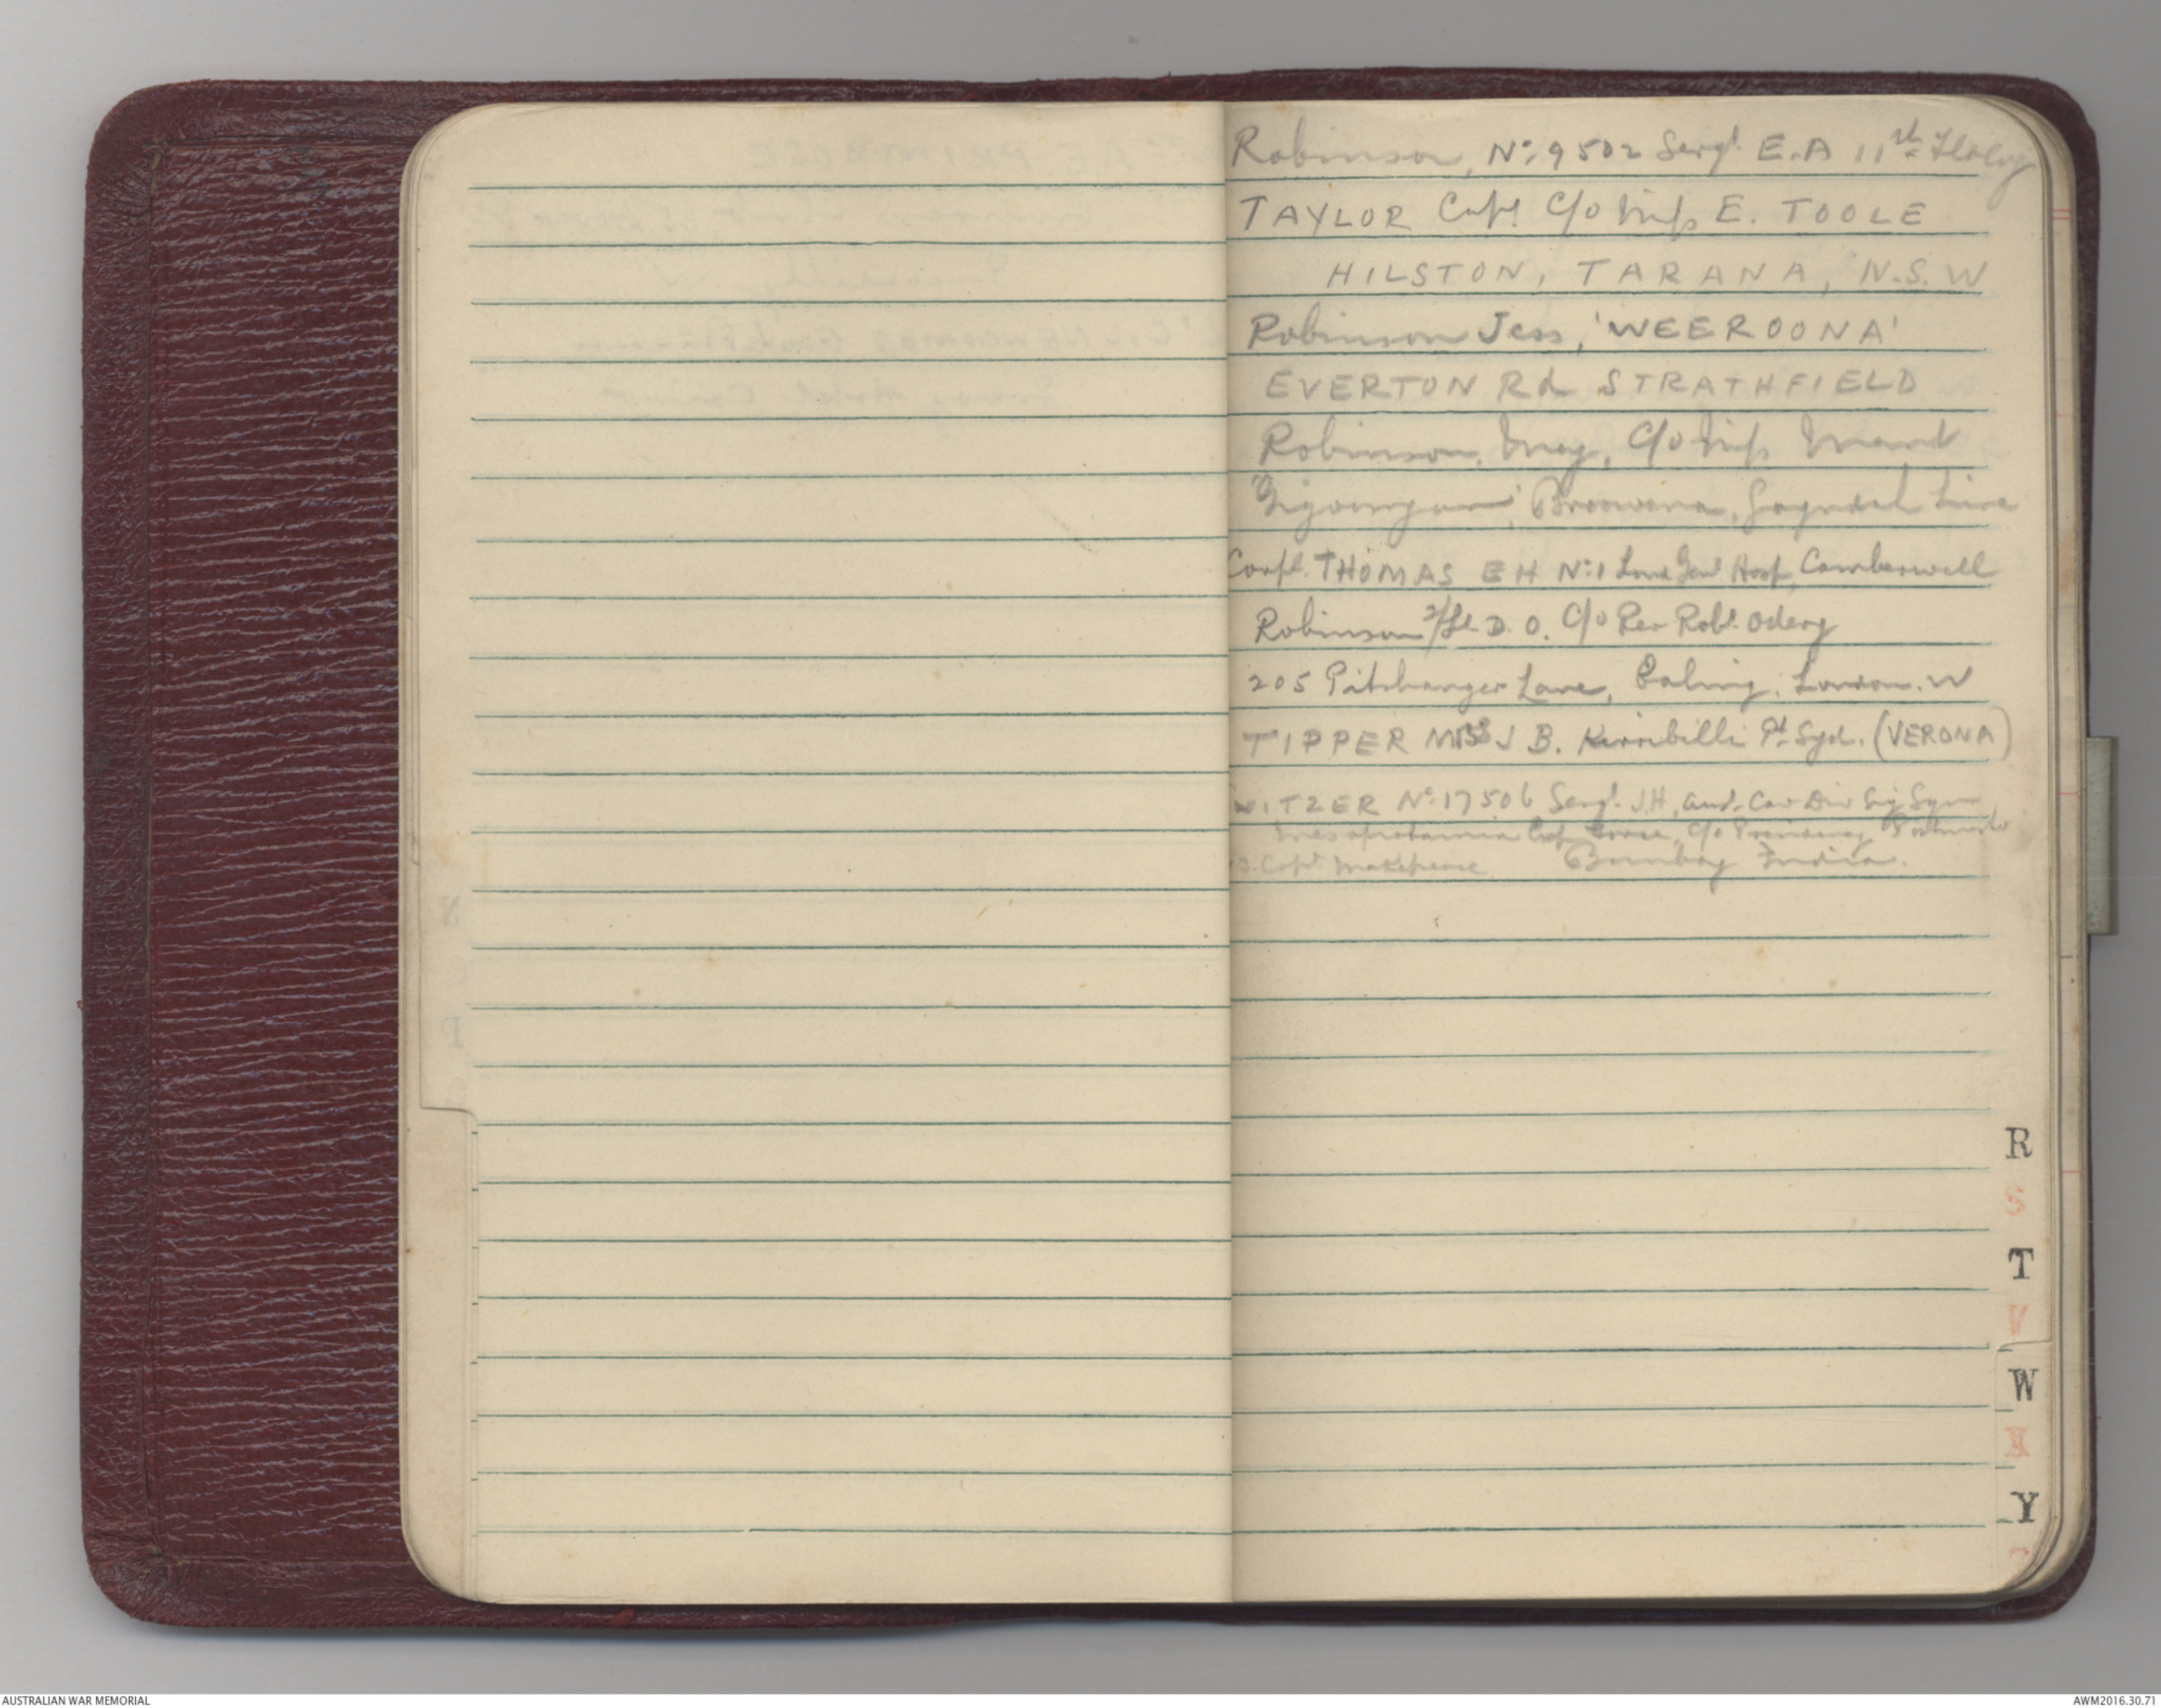 Robinson, No. 9502 Sergt. E.A 11th
TAYLOR Capt C/o Miss E. TOOLE
HILSTON, TARANA, N.S.W
Robinson Jess, 'WEEROONA'
EVERTON Rd STRATHFIELD
Robinson, May, C/o Miss
Line
Corpl. THOMAS E H No. 1 Lond Genl Hosp, Camberwell
Robinson 2/Lt D. O. C/o Rev Robt.
205 Pitshanger Lane, Ealing, London. W
TIPPER Miss J B. Kirribilli Pt Syd. (VERONA)
WITZER No. 17506 Sergt. J.H, Aust. Cav Div Sig Sqn
Mesopotamia Exp Force, C/o
Capt. Makepeace Bombay India.
R
S
T
V
W
X
Y
N
P
AUSTRALIAN WAR MEMORIAL
AWM2016.30.71